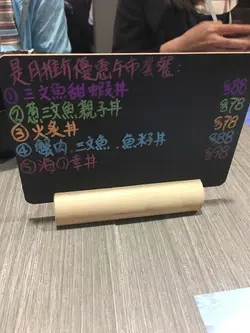 是月推介優惠午市套餐:
① 三文魚甜蝦丼 $88
② 葱三文魚親子丼 $78
③ 火炙丼 $78
④ 蟹肉.三文魚.魚籽丼 $88
⑤ 海の幸丼 $98